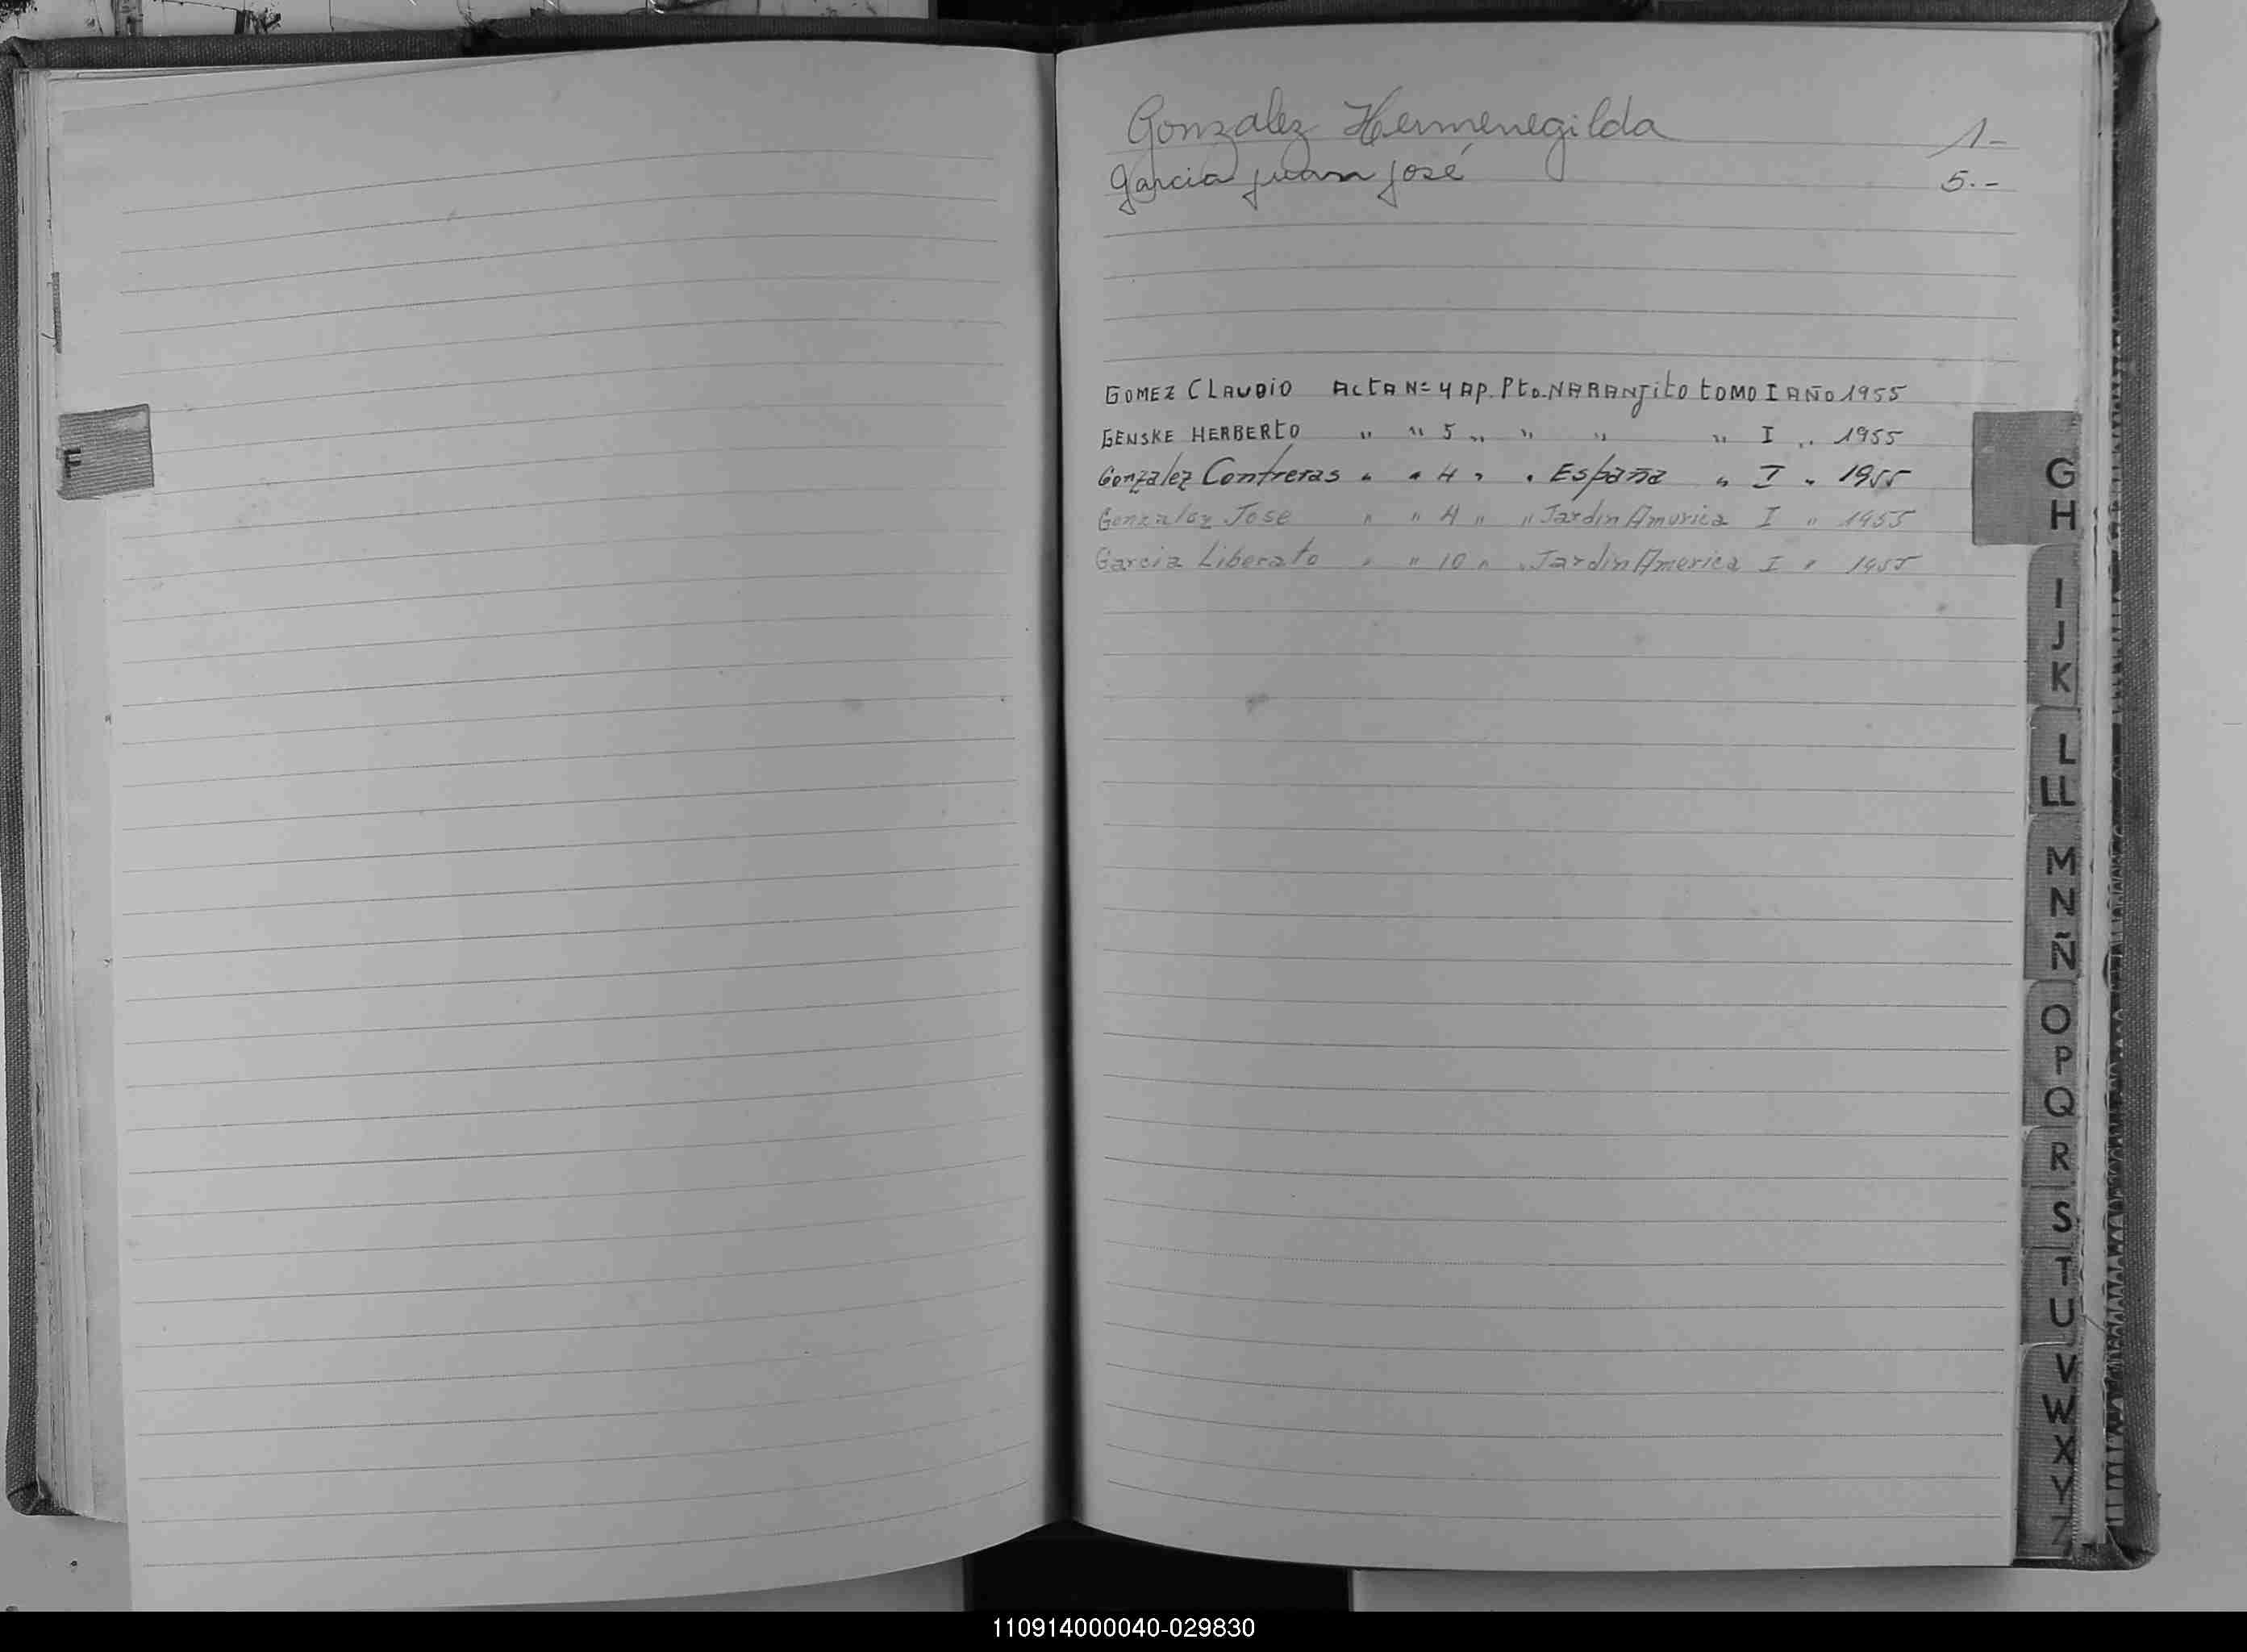 F
Gonzalez Hermenegilda 1-
Garcia Juan José 5.-
GOMEZ CLAUDIO ACTA N= 4 AP. Pto. NARANJITO TOMO I AÑO 1955
GENSKE HERBERTO " " 5 " " " " I " 1955
Gonzalez Contreras " " 4 " " España " I " 1955
Gonzalez Jose " " 4 " " Jardin America I " 1955
Garcia Liberato " " 10 " " Jardin America I " 1955
G
H
I
J
K
L
LL
M
N
Ñ
O
P
Q
R
S
T
U
V
W
X
Y
Z
110914000040-029830